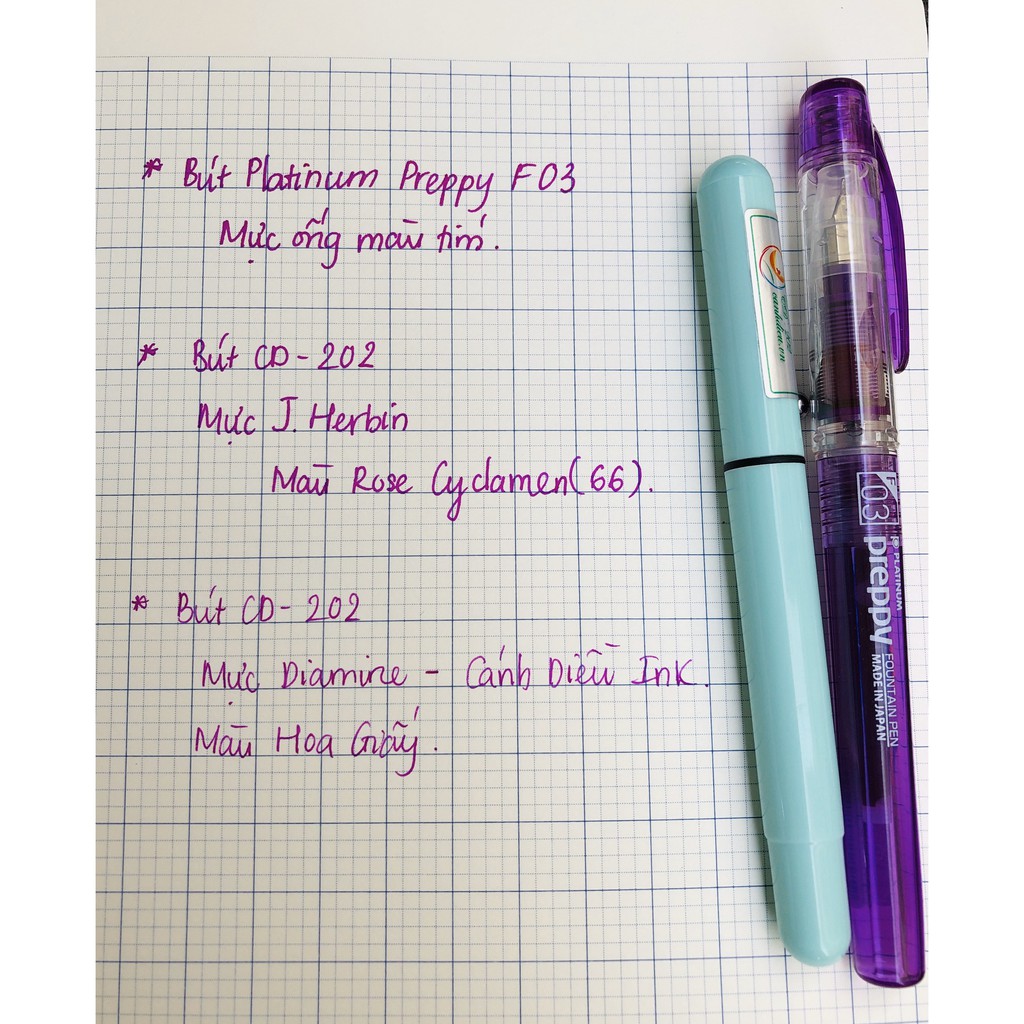 * Bút Platinum Preppy F03
Mực ống màu tím.
* Bút CD-202
Mực J. Herbin
Màu Rose Cyclamen (66).
* Bút CD-202
Mực Diamine - Cánh Diều Ink.
Màu Hoa Giấy.
canhdieu.vn
F
03
PLATINUM
preppy
FOUNTAIN PEN
MADE IN JAPAN